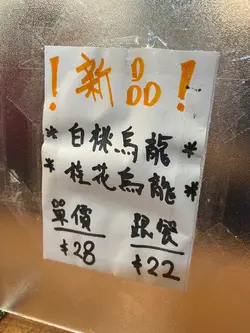 ！新品！
*白桃烏龍*
*桂花烏龍*
單價 跟餐
$28 $22